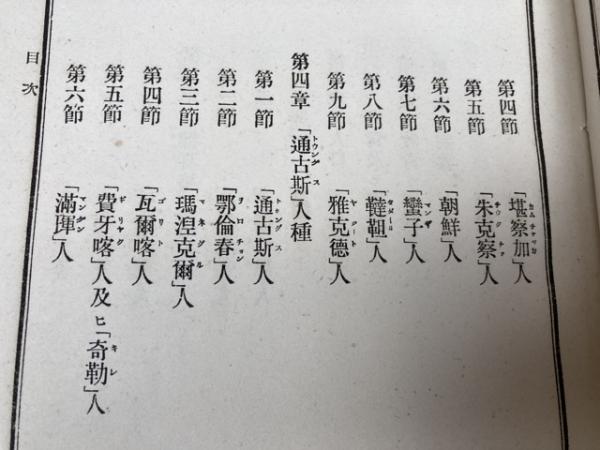 第四節 「堪察加」人
第五節 「朱克察」人
第六節 「朝鮮」人
第七節 「蠻子」人
第八節 「韃靼」人
第九節 「雅克德」人
第四章 「通古斯」人種
第一節 「通古斯」人
第二節 「鄂倫春」人
第三節 「瑪涅克爾」人
第四節 「瓦爾喀」人
第五節 「費牙喀」人及ヒ「奇勒」人
第六節 「滿琿」人
目次